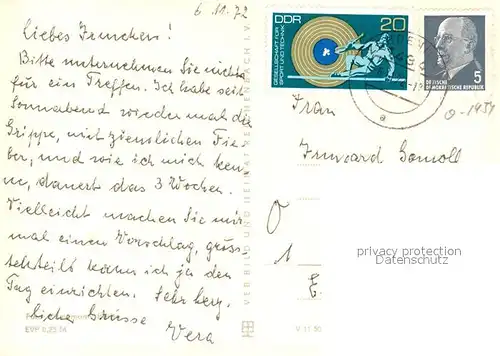 6. 11. 72
Liebes Irmchen!
Bitte unternehmen Sie nichts
für ein Treffen. Ich habe seit
Sonnabend wieder mal die
Grippe, mit ziemlichen Fie
ber, und wie ich mich ken
ne, dauert das 3 Wochen.
Vielleicht machen Sie mir
mal einen Vorschlag, gröss-
tenteils kann ich ja den
Tag einrichten. Sehr herz-
liche Grüsse
Vera
EVP 0,25
VEB BILD UND HEIMAT REICHENBACH I.V.
V 11 50
DDR
20
GESELLSCHAFT FÜR
SPORT UND TECHNIK
5
DEUTSCHE
DEMOKRATISCHE REPUBLIK
a
Frau
Irmgard
privacy protection
Datenschutz